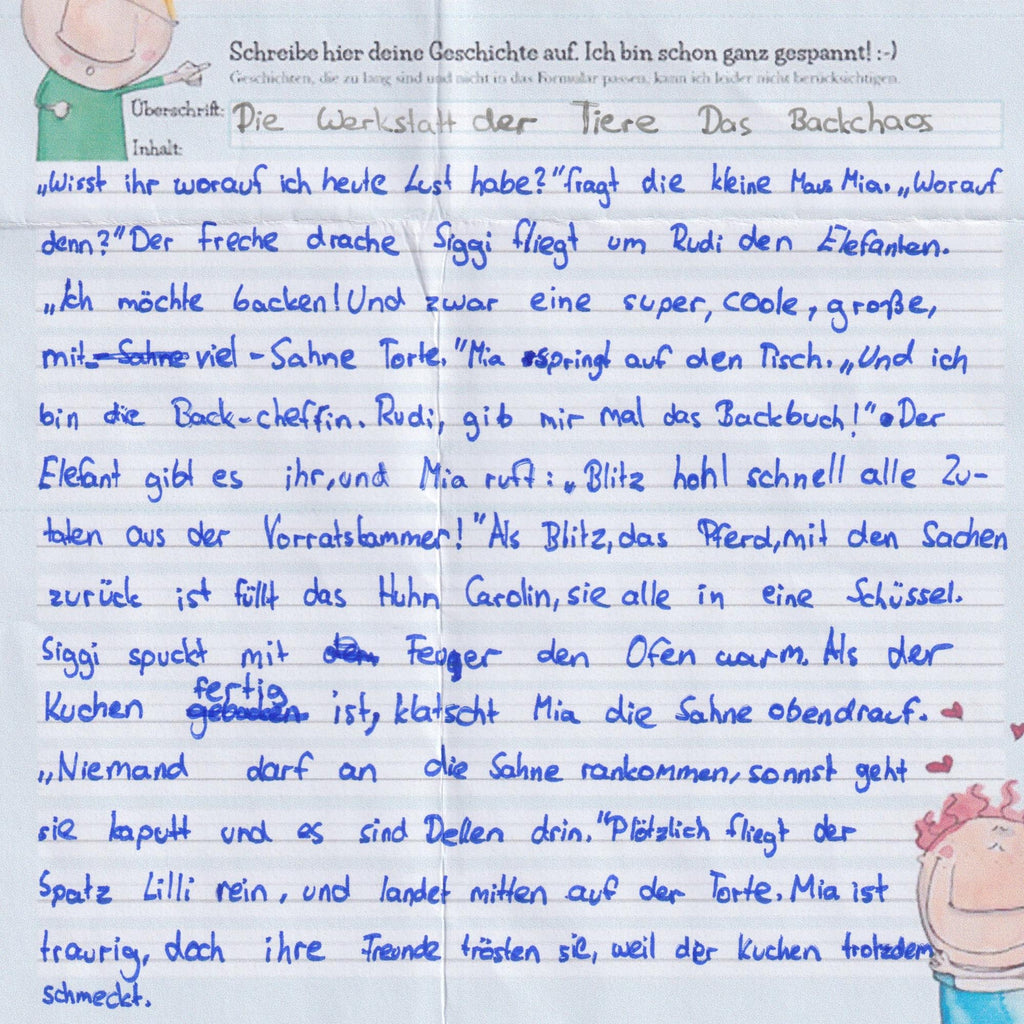 Schreibe hier deine Geschichte auf. Ich bin schon ganz gespannt! :-)
Geschichten, die zu lang sind und nicht in das Formular passen, kann ich leider nicht berücksichtigen.
Überschrift: Die Werkstatt der Tiere Das Backchaos
Inhalt:
„Wisst ihr worauf ich heute Lust habe?" fragt die kleine Maus Mia. „Worauf
denn?" Der freche drache Siggi fliegt um Rudi den Elefanten.
„Ich möchte backen! Und zwar eine super, coole, große,
mit - Sahne viel - Sahne Torte." Mia springt auf den Tisch. „Und ich
bin die Back-cheffin. Rudi, gib mir mal das Backbuch!" Der
Elefant gibt es ihr, und Mia ruft: „Blitz hohl schnell alle Zu-
taten aus der Vorratskammer!" Als Blitz, das Pferd, mit den Sachen
zurück ist füllt das Huhn Carolin, sie alle in eine Schüssel.
Siggi spuckt mit den Feuer den Ofen warm. Als der
fertig
Kuchen gebacken ist, klatscht Mia die Sahne obendrauf.
„Niemand darf an die Sahne rankommen, sonnst geht
sie kaputt und es sind Dellen drin." Plötzlich fliegt der
Spatz Lilli rein, und landet mitten auf der Torte. Mia ist
traurig, doch ihre Freunde trösten sie, weil der Kuchen trotzdem
schmeckt.